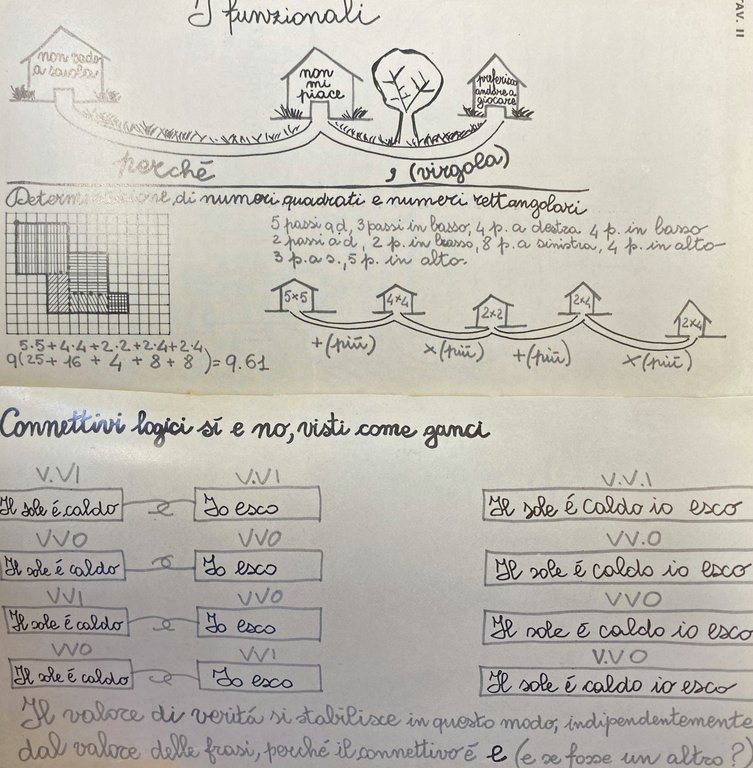 TAV. II
I funzionali
non vado
a scuola
non
mi
piace
preferisco
andare a
giocare
perché
, (virgola)
Determinazione di numeri quadrati e numeri rettangolari
5 passi a d, 3 passi in basso, 4 p. a destra 4 p. in basso
2 passi a d, 2 p. in basso, 8 p. a sinistra, 4 p. in alto
3 p. a s., 5 p. in alto.
5×5
4×4
2×2
2×4
2×4
+(più)
×(più)
+(più)
×(più)
5·5+4·4+2·2+2·4+2·4
9(25+16+4+8+8)=9.61
Connettivi logici sí e no, visti come ganci
V.V1 V.V1 V.V.1
Il sole é caldo e Io esco Il sole é caldo io esco
VV0 VV0 VV.0
Il sole é caldo e Io esco Il sole é caldo io esco
VV1 VV0 VV0
Il sole é caldo e Io esco Il sole é caldo io esco
VV0 VV1 V.V0
Il sole é caldo e Io esco Il sole é caldo io esco
Il valore di veritá si stabilisce in questo modo, indipendentemente
dal valore delle frasi, perché il connettivo é e (e se fosse un altro?)